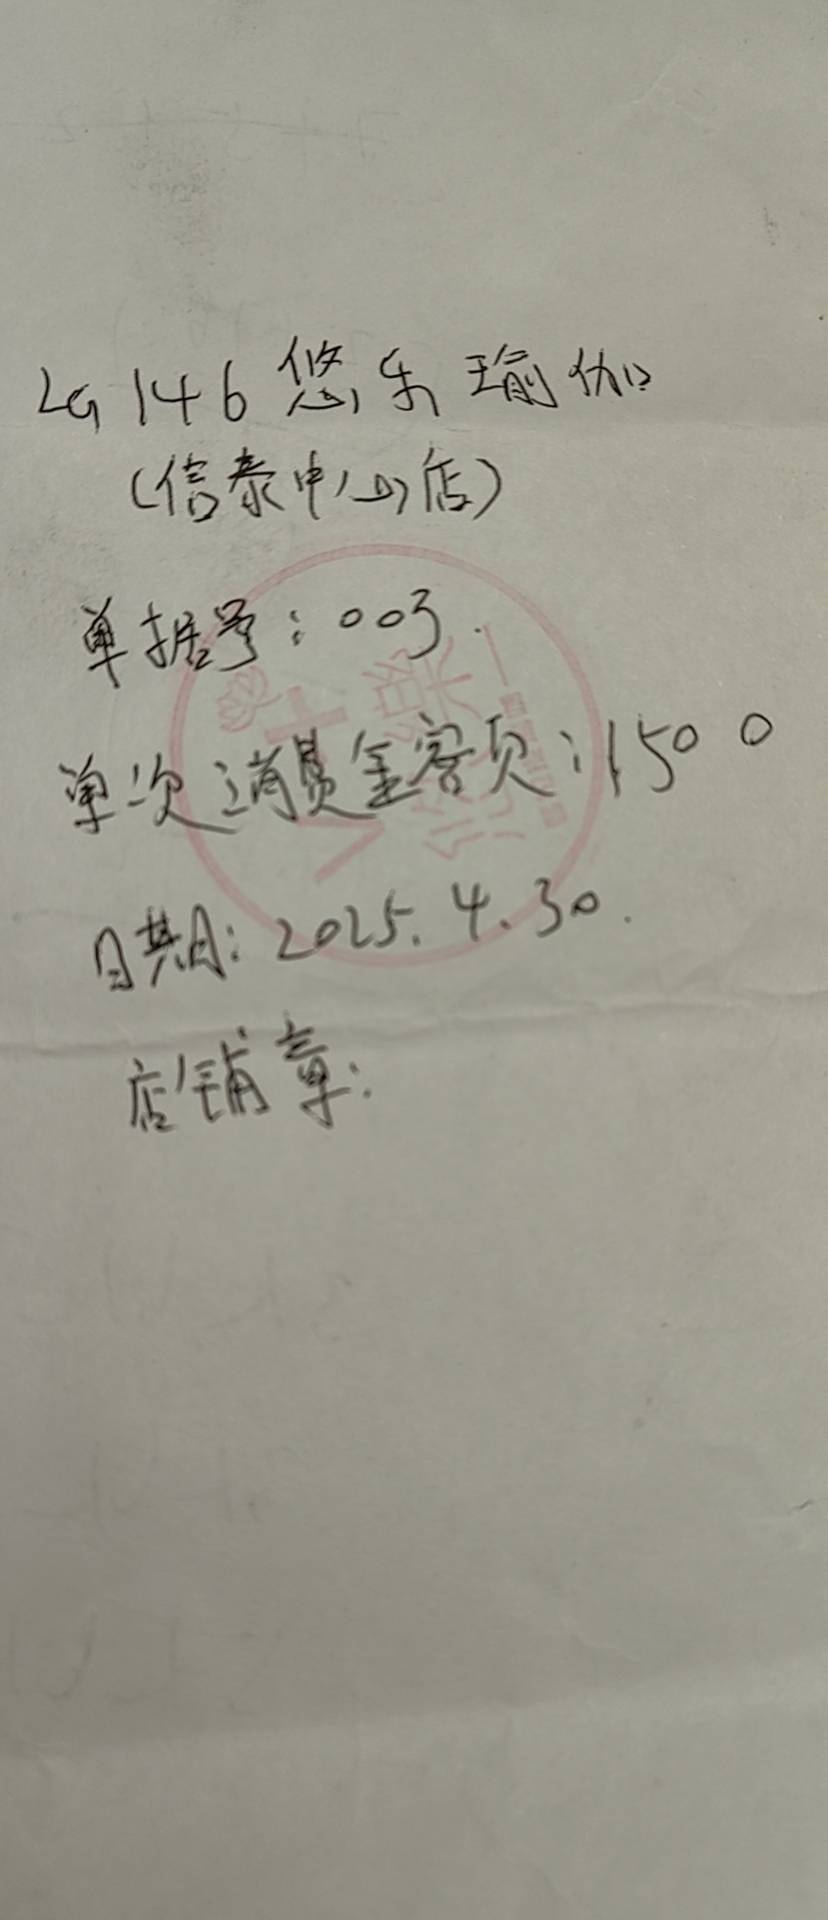 LG146悠乐瑜伽
(信泰中心店)
单据号:003.
单次消费金额:1500
日期:2025.4.30.
店铺章: